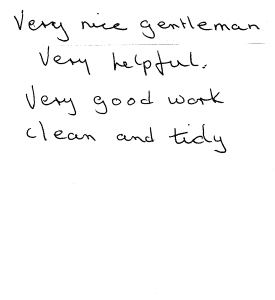 Very nice gentleman
Very helpful.
Very good work
clean and tidy